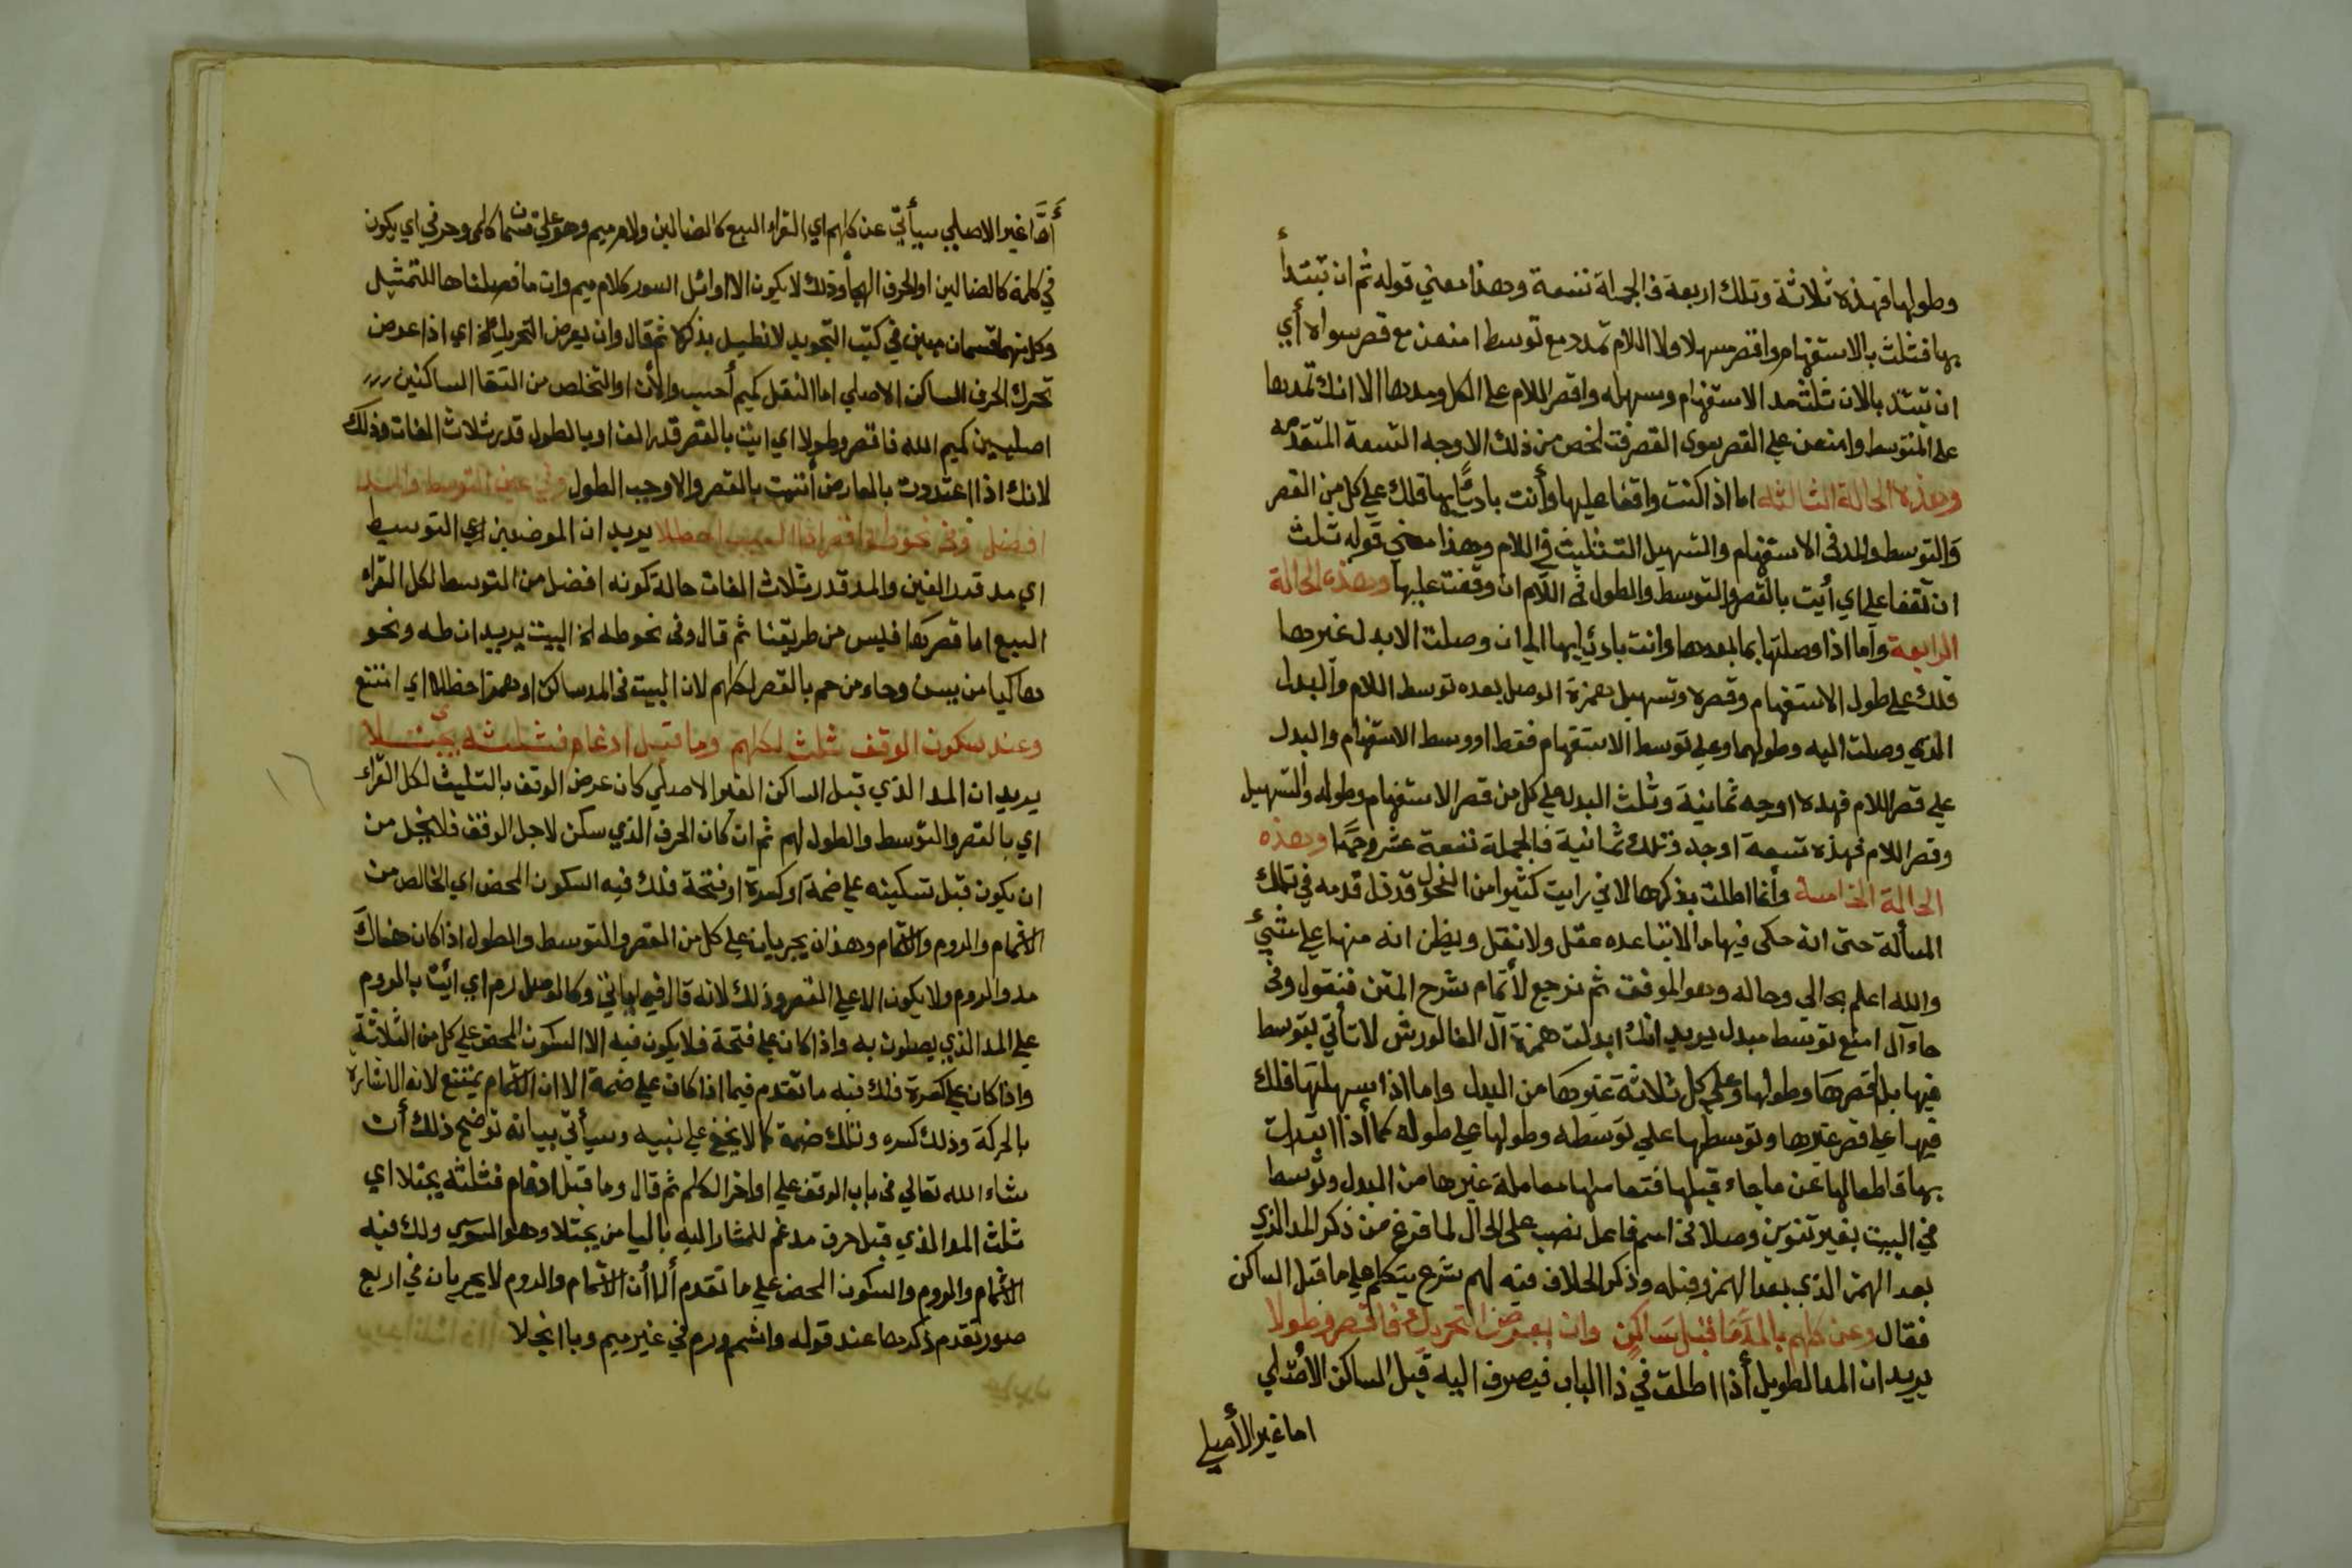 وطولها فهذه ثلاثة وتلك اربعة فالجملة تسعة وهذا معني قوله ثم ان تبتدأ
بها فثلث بالاستفهام واقصر مسهلا ولا اللام تمدد مع توسط امنعن مع قصر سواه أي
ان تبتد بالان ثلث مد الاستفهام وسهله واقصر اللام على الكل ومدها الا انك تمدها
على المتوسط وامنعن علي القصر سوى القصر فتلخص من ذلك الاوجه التسعة المتقدمه
وهذه الحالة الثالثه اما اذا كنت واقفا عليها وأنت بادئا بها فلك علي كل من القصر
والتوسط والمد في الاستفهام والتسهيل التثليث في اللام وهذا معني قوله ثلث
ان تقفا على اي أيت بالقصر والتوسط والطول في اللام ان وقفت عليها وهذه الحالة
الرابعة وأما اذا وصلتها بما بعدها وانت بادئ بها الي ان وصلت الابدل غيرها
فلك على طول الاستفهام وقصره وتسهيل همزة الوصل بعده توسط اللام والبدل
الذي وصلت اليه وطولهما وعلي توسط الاستفهام فقط اووسط الاستفهام والبدل
علي قصر اللام فهذه اوجه ثمانية وثلث البدل علي كل من قصر الاستفهام وطوله والتسهيل
وقصر اللام فهذه تسعة اوجه وتلك ثمانية فالجملة تسعة عشر وجها وهذه
الحالة الخامسة وأنما اطلت بذكرها لاني رايت كثيرا من الفحول قد زل قدمه في تلك
المسألة حتى انه حكى فيها ما لا يساعده عقل ولا نقل ويظن انه منها علي شيء
والله اعلم بحالي وحاله وهو الموفق ثم نرجع لأتمام شرح المتن فنقول وفي
جاء آل امنع توسط مبدل يريد انك ابدلت همزة آل الفا لورش لا تأتي بتوسط
فيها بل اقصرها وطولها وعلى كل ثلاثة غيرها من البدل واما اذا سهلتها فلك
فيها علي قصر غيرها وتوسطها علي توسطه وطولها علي طوله كما أذا ابتدات
بها قاطعا لها عن ما جاء قبلها فتعاملها معاملة غيرها من البدل وتوسط
في البيت بغير تنوين وصلا في اسم فاعل نصب على الحال لما فرغ من ذكر المد الذي
بعد الهمز الذي بعد الهمز وقبله وذكر الخلاف فيه لهم شرع يتكلم علي ما قبل الساكن
فقال وعن كلهم بالمد ما قبل ساكن وان يعرض التحريك فاقصر وطولا
يريد ان المد الطويل أذا اطلق في ذا الباب فيصرف اليه قبل الساكن الاصلي
اما غير الأصلي
أمّا غير الاصلي سيأتي عن كلهم اي القراء السبع كالضالين ولام ميم وهو علي قسمان كلمي وحرفي اي يكون
في كلمة كالضالين او الحرف الهجا وذلك لا يكون الا اوائل السور كلام ميم وات ما فصلناها للتمثيل
وكل منهما قسمان مبين في كتب التجويد لا نطيل بذكرها ثم قال وان يعرض التحريك الخ اي اذا عرض
تحرك الحرف الساكن الاصلي اما النقل كميم أحسب والأن او التخلص من التقا الساكنين
اصليين كميم الله فاقصر وطولا اي ايت بالقصر قدر الف او بالطول قدر ثلاث الفات وذلك
لانك اذا اعتددت بالعارض أتيت بالقصر والا وجب الطول وفي عين التوسط والمد
افضل وفي نحو طه اقصر اذا البيت احظلا يريد ان الموضعين اي التوسط
اي مد قدر الفين والمد قدر ثلاث الفات حالة كونه افضل من التوسط لكل القراء
السبع اما قصرها فليس من طريقنا ثم قال وفي نحو طه الخ البيت يريد ان طه ونحو
ها كيا من يس وحاء من حم بالقصر لكلهم لان البيت في المد ساكن او همز احظلا اي امتنع
وعند سكون الوقف ثلث لكلهم وما قبل ادغام فثلثه يجتلا
يريد ان المد الذي قبل الساكن الغير الاصلي كان عرض الوقف بالتثليث لكل القراء
اي بالقصر والتوسط والطول لهم ثم ان كان الحرف الذي سكن لاجل الوقف فلا يخل من
ان يكون قبل تسكينه علي ضمة او كسرة او فتحة فلك فيه السكون المحض اي الخالص من
الاشمام والروم والاشمام وهذان يجريان علي كل من القصر والتوسط والطول اذا كان هناك
مد والروم ولا يكون الا علي القصر وذلك لانه قال فيما ياتي وكالوصل رم اي ايت بالروم
علي المد الذي يصلون به واذا كان علي فتحة فلا يكون فيه الا السكون المحض علي كل من الثلاثة
واذا كان علي كسرة فلك فيه ما تقدم فيما اذا كان علي ضمة الا ان الاشمام يمتنع لانه الاشارة
بالحركة وذلك كسره وتلك ضمة كما لا يخفي علي نبيه وسيأتي بيانه توضح ذلك أن
شاء الله تعالي في باب الوقف علي اواخر الكلم ثم قال وما قبل ادغام فثلثه يجتلا اي
ثلث المد الذي قبل حرف مدغم للمشار اليه باليا من يجتلا وهو السوسي ولك فيه
الاشمام والروم والسكون المحض علي ما تقدم ألا أن الاشمام والروم لا يجريان في اربع
صور تقدم ذكرها عند قوله واشمم ورم في غير ميم وبا انجلا
١٦